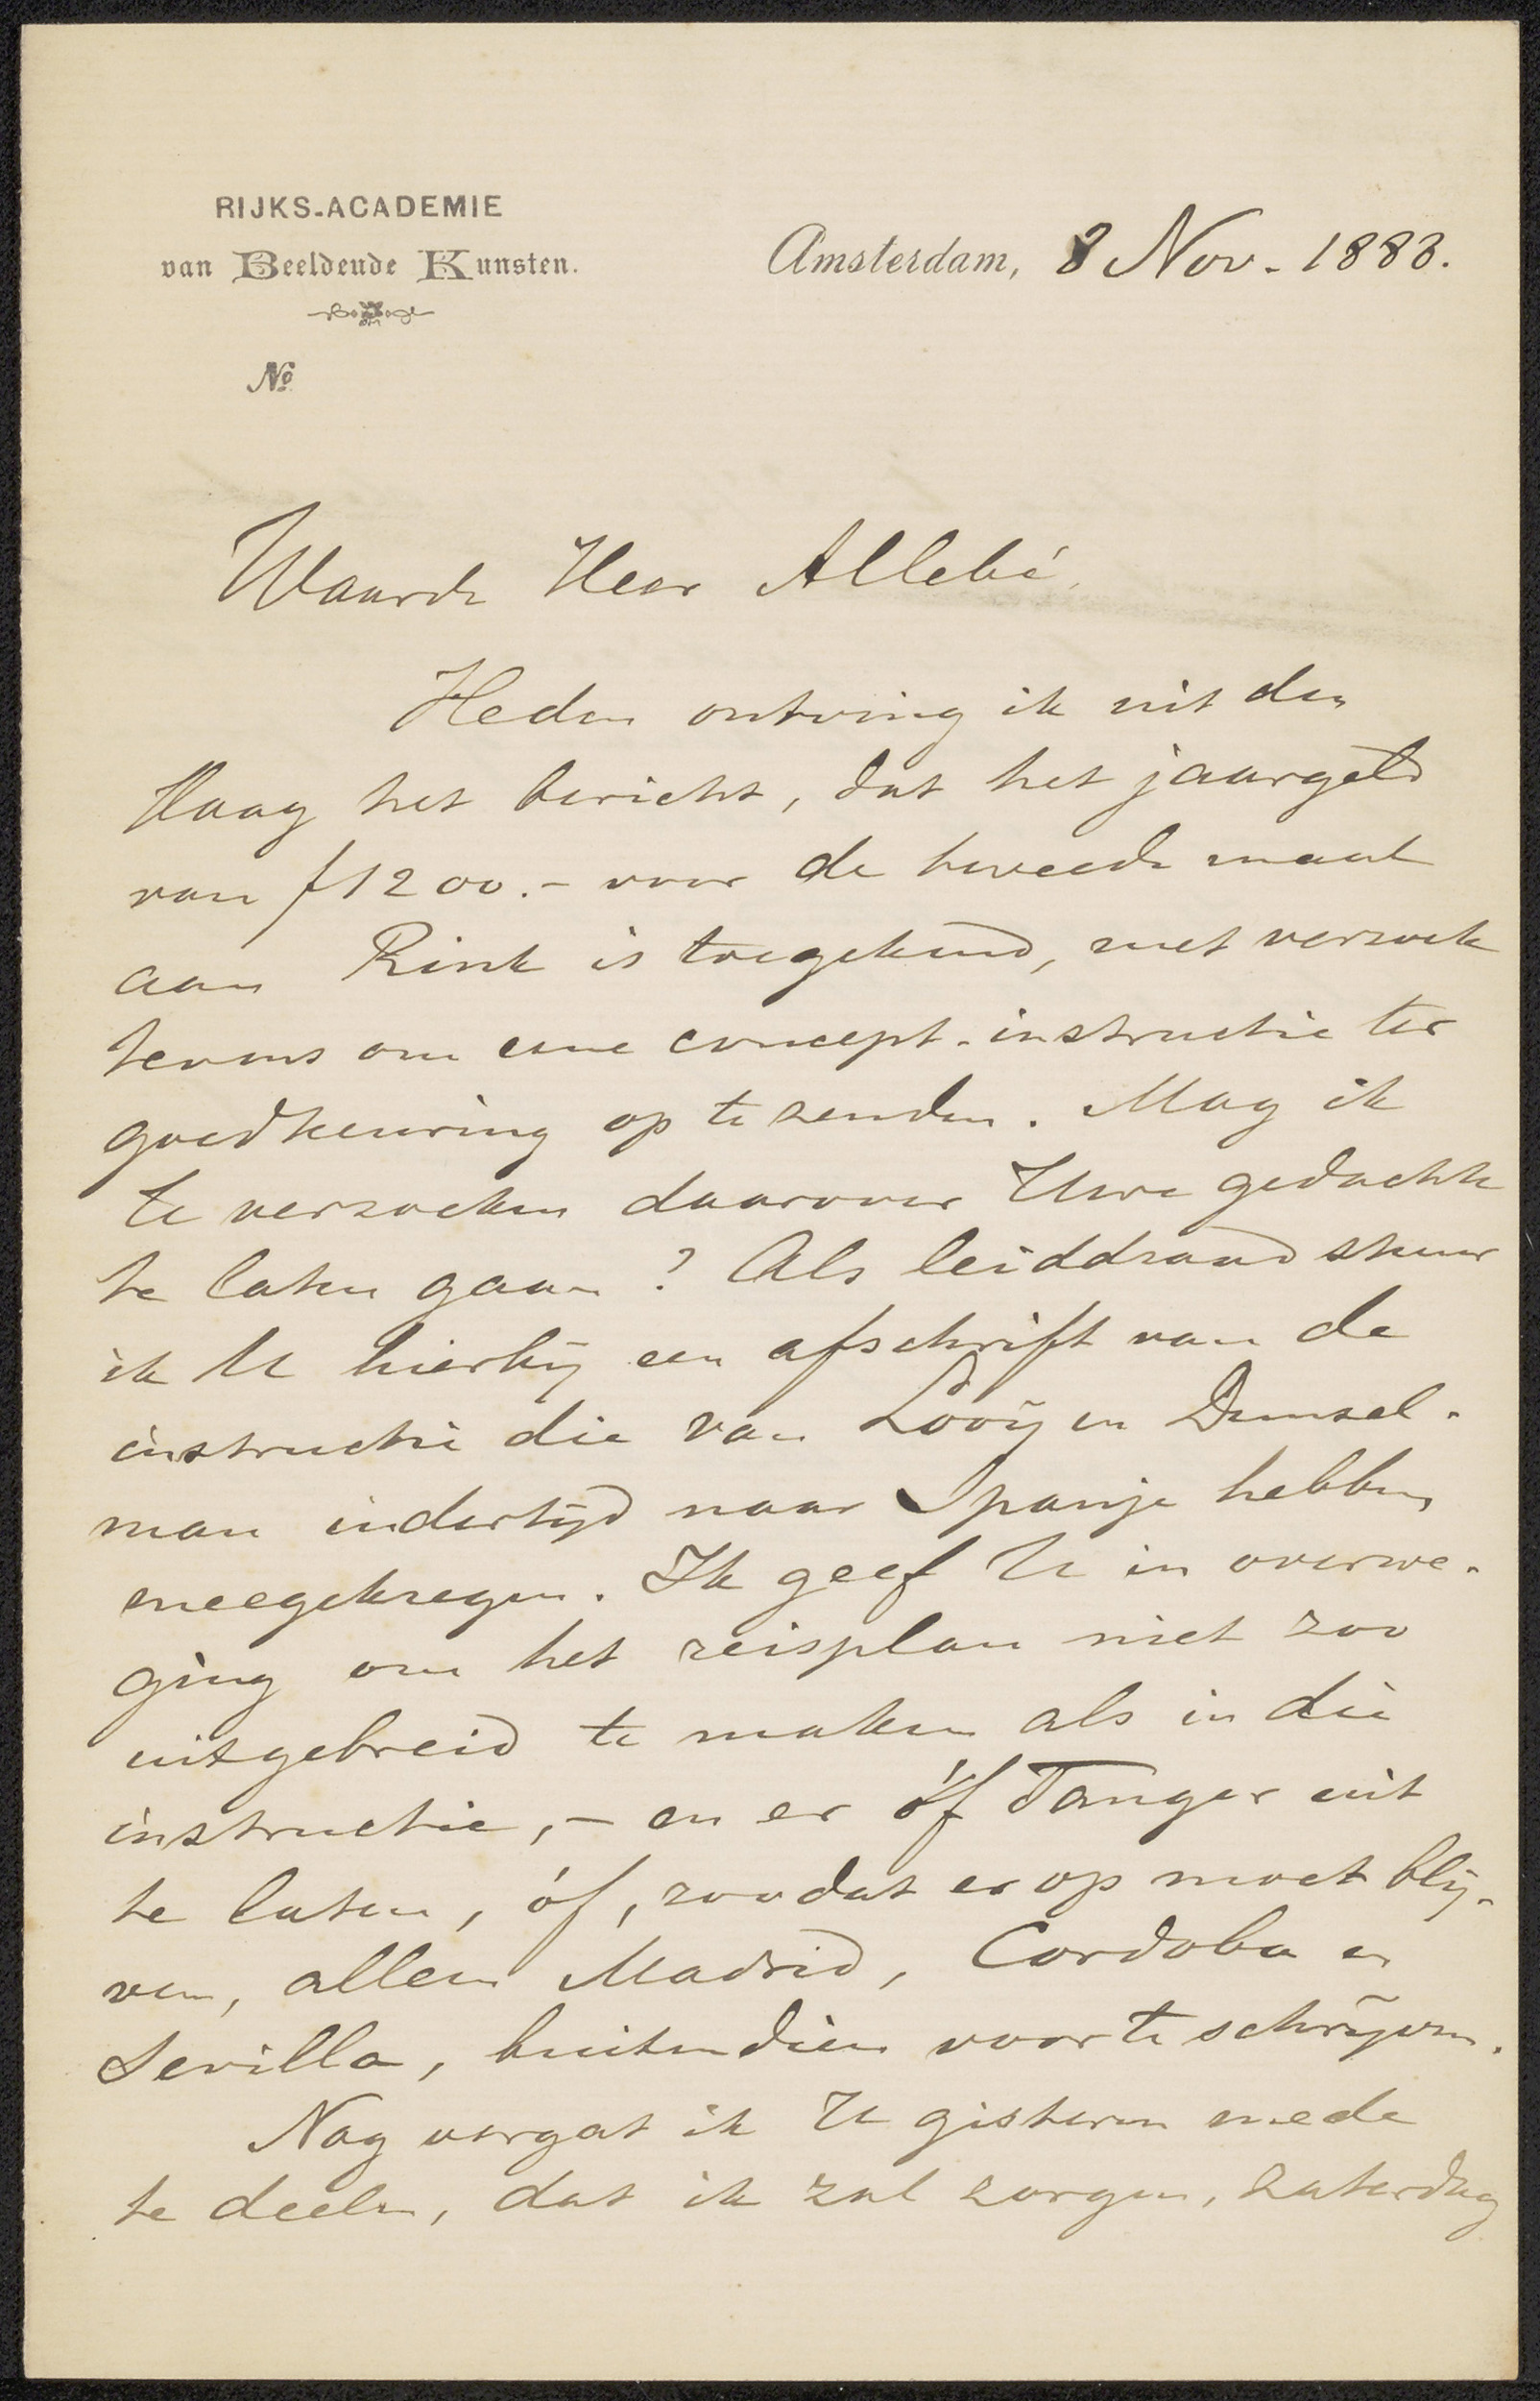 RIJKS-ACADEMIE
van Beeldende Kunsten.
Amsterdam, 8 Nov. 1888.
No
Waarde Heer Allebé,
Heden ontving ik uit den
Haag het bericht, dat het jaargeld
van f 1200.- voor de tweede maal
aan Rink is toegekend, met verzoek
tevens om eene concept-instructie ter
goedkeuring op te zenden. Mag ik
U verzoeken daarover Uwe gedachte
te laten gaan? Als leiddraad stuur
ik U hierbij een afschrift van de
instructie die van Looÿ en Dunsel-
man indertijd naar Spanje hebben
meegekregen. Ik geef U in overwe-
ging om het reisplan niet zoo
uitgebreid te maken als in die
instructie, - en er óf Tanger uit
te laten, óf, zoo dat er op moet blij-
ven, alleen Madrid, Cordoba en
Sevilla, buitendien voor te schrijven.
Nog vergat ik U gisteren mede
te deelen, dat ik zal zorgen, Zaterdag